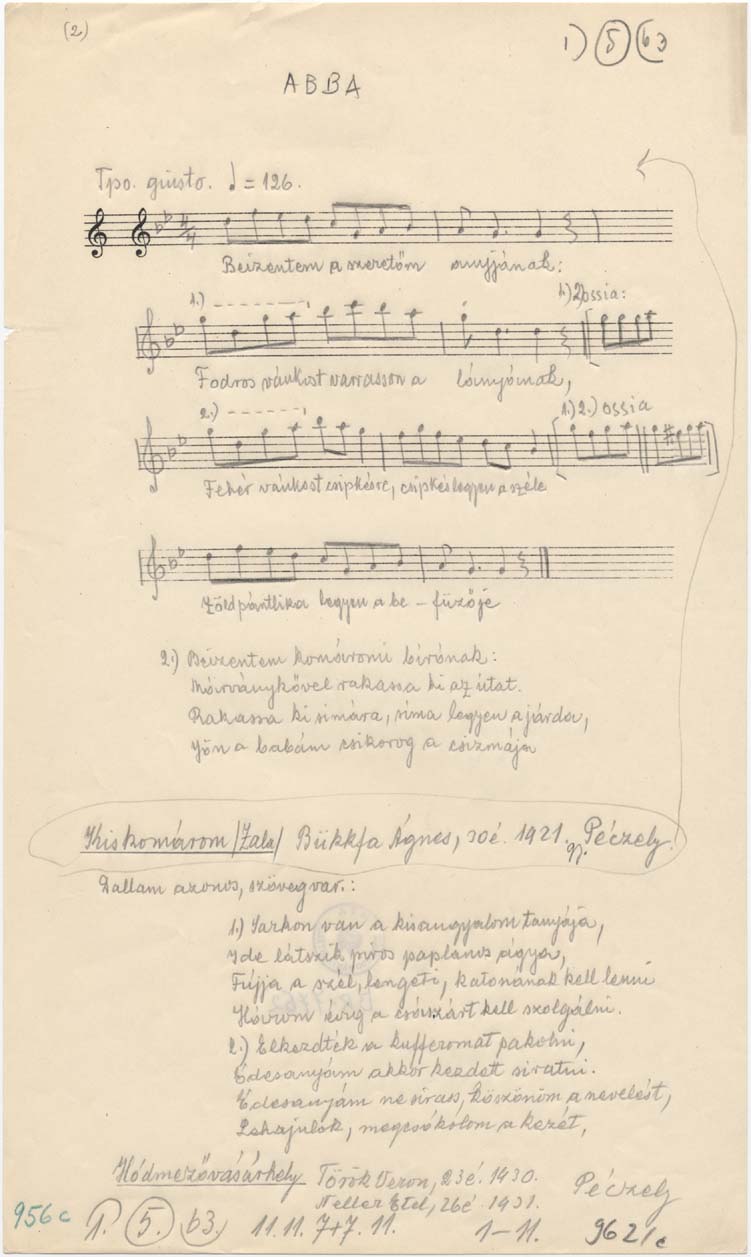 (2)
1) 5 b3
ABBA
Tpo. giusto. ♩ = 126.
4/4
Beizentem a szeretőm anyjának:
1.)
1.) 2) ossia:
Fodros vánkost varrasson a lányának,
2.)
1.) 2.) ossia
Fehér vánkost csipkésre, csipkés legyen a széle
Zöld pántlika legyen a be - fűzője
2.) Beizentem komáromi bírónak:
Márványkővel rakassa ki az útat.
Rakassa ki simára, sima legyen a járda,
Jön a babám csikorog a csizmája
Kiskomárom /Zala/ Bükkfa Ágnes, 30é. 1921. gy. Péczely
Dallam azonos, szövegvar.:
1.) Sarkon van a kisangyalom tanyája,
Ide látszik piros paplanos ágya,
Fújja a szél, lengeti, katonának kell lenni
Három évig a császárt kell szolgálni.
2.) Elkezdték a kufferomat pakolni,
Édesanyám akkor kezdett siratni.
Édesanyám ne sirass, köszönöm a nevelést,
Lehajulok, megcsókolom a kezét,
Hódmezővásárhely Török Veron, 23é. 1930.
Neller Etel, 26é. 1931.
Péczely
956c
1. 5. b3. 11.11. 7+7. 11. 1-11. 9621c